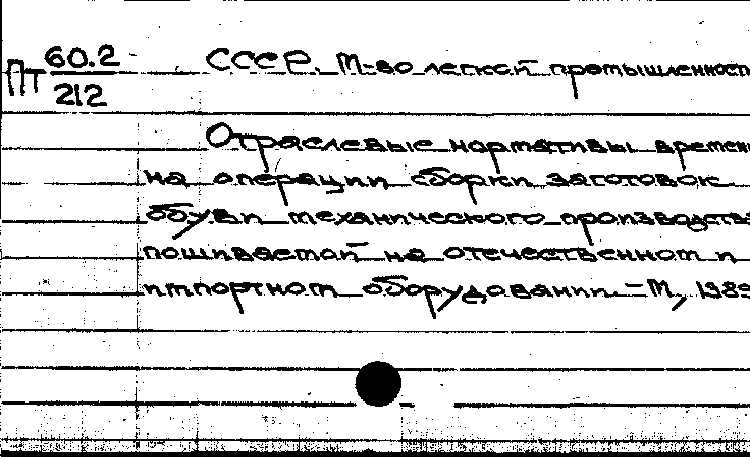 Пт 60.2/212 СССР. М-во легкой промышленност
Отраслевые нормативы времен
на операции сборки заготовок
обуви механического производств
пошиваемой на отечественном и
импортном оборудовании. – М., 1989